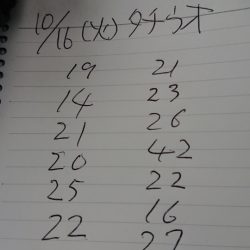 10/16(火)タチウオ
19 21
14 23
21 26
20 42
25 22
22 16
27